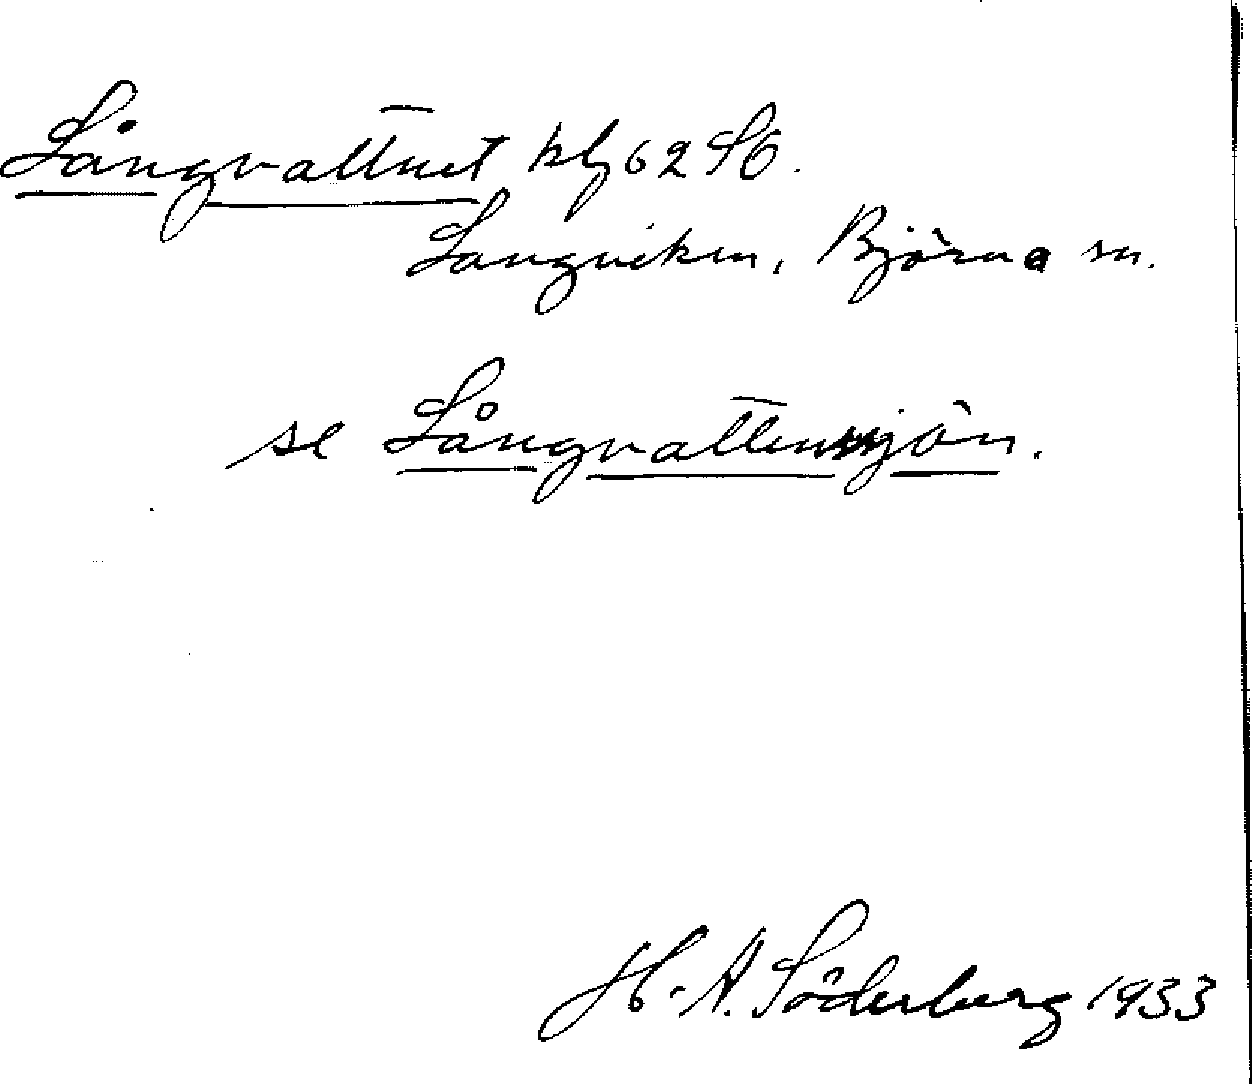 Långvattnet kbl 62 SO.
Långviken, Björna sn.
se Långvattensjön.
H. A. Söderberg 1933